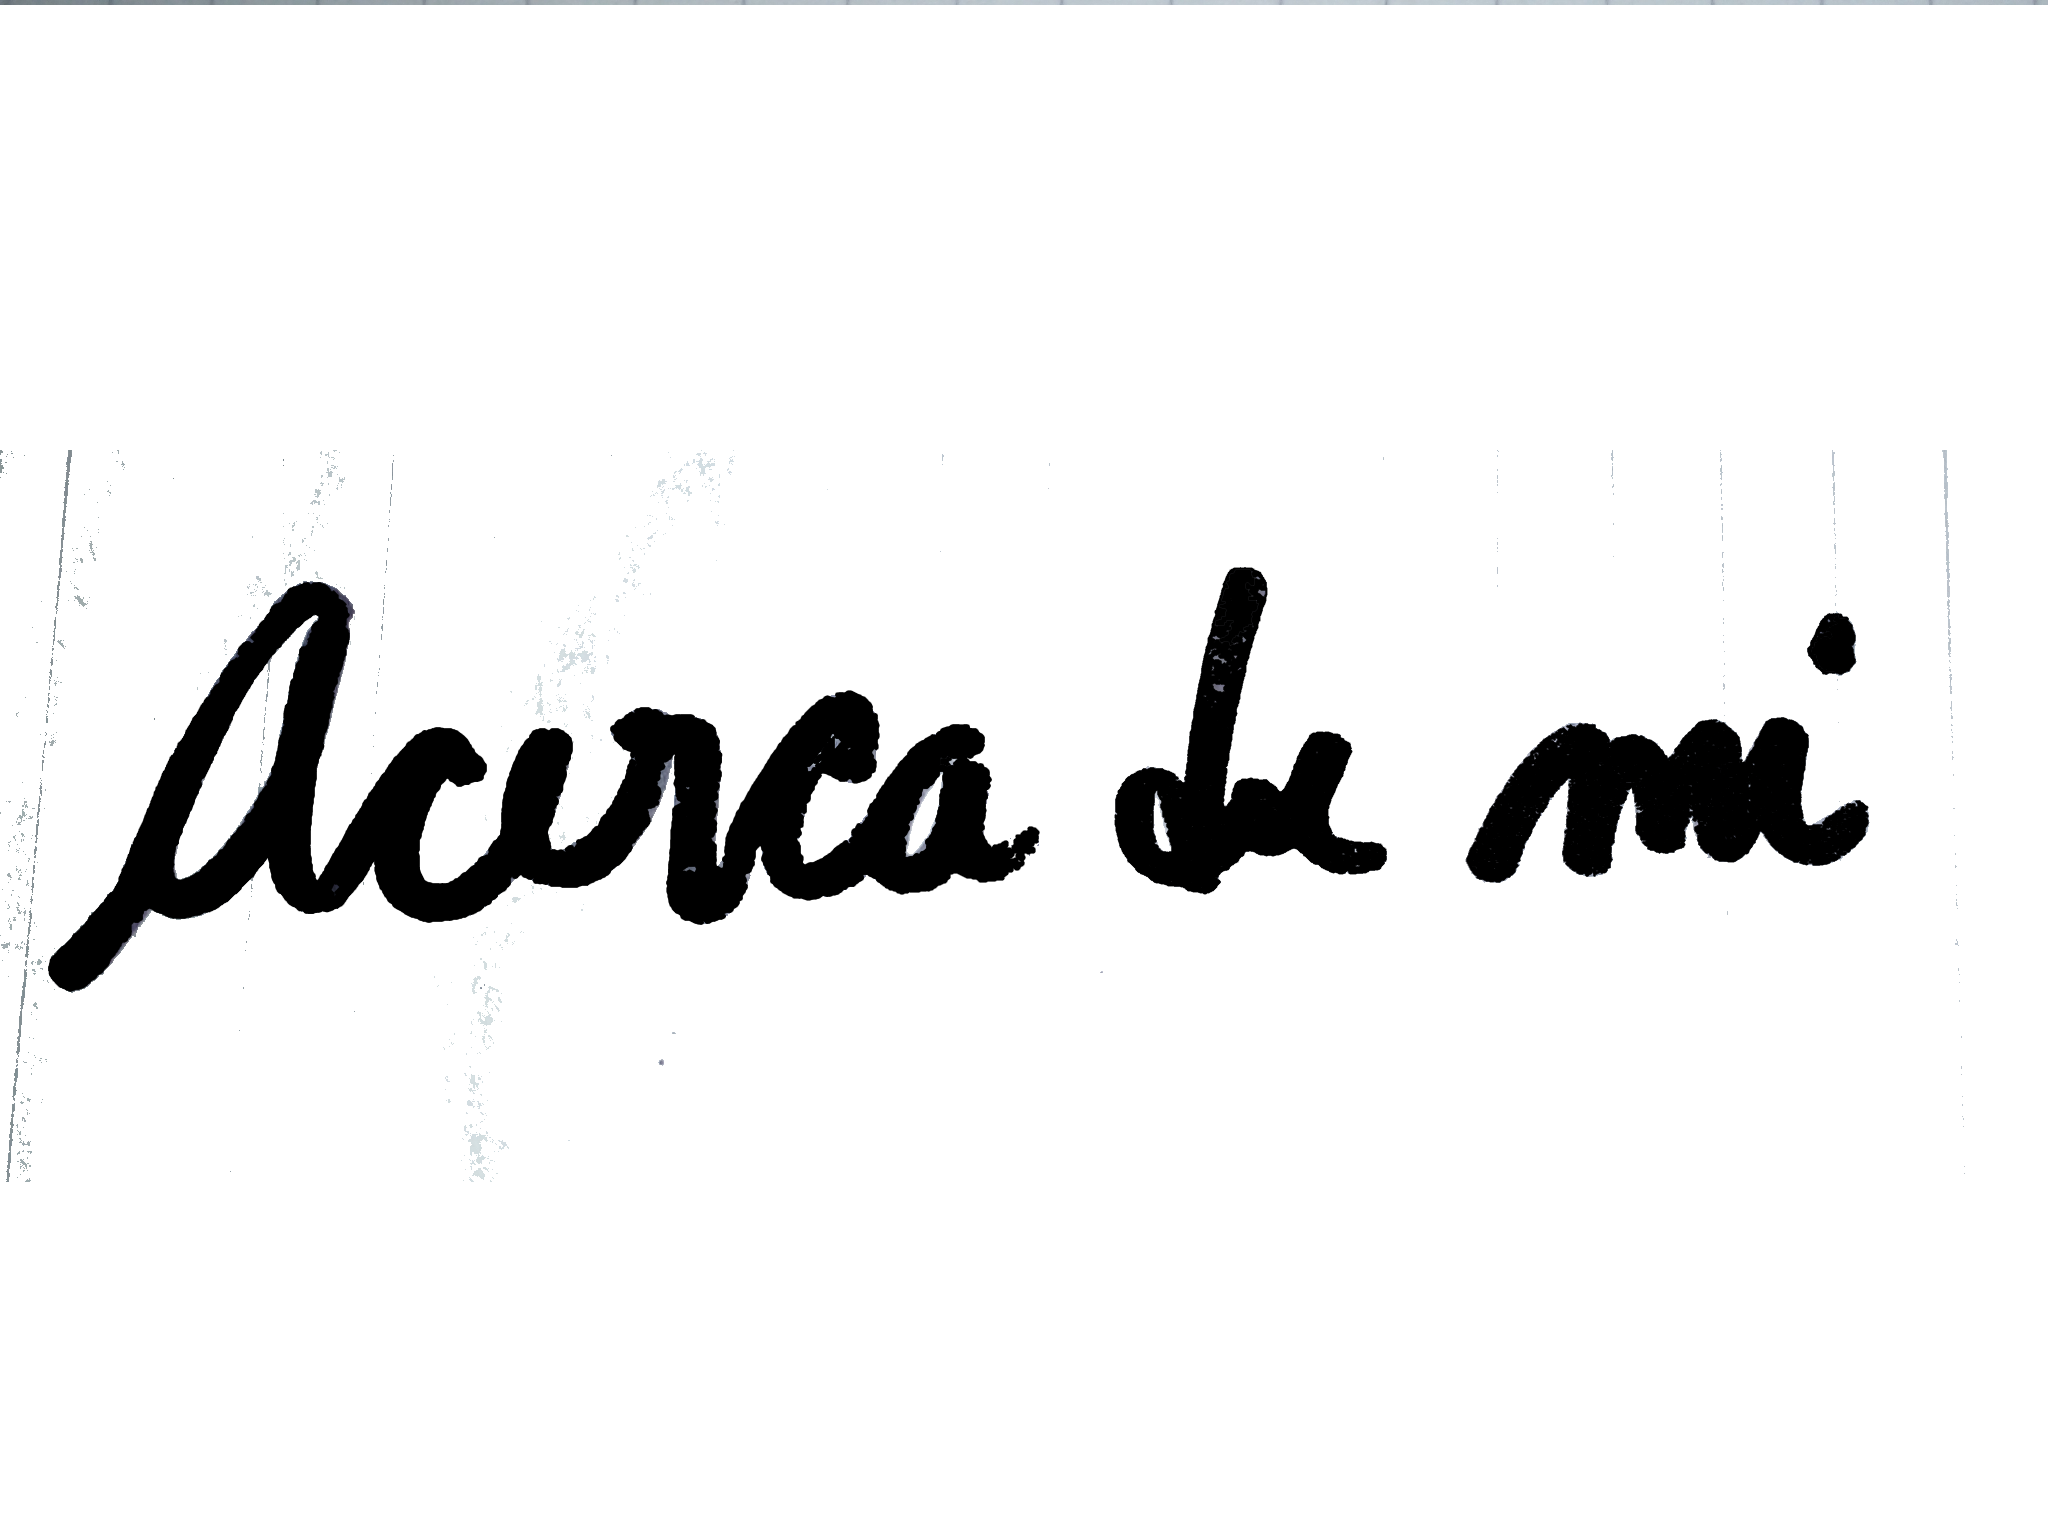 Acerca de mi